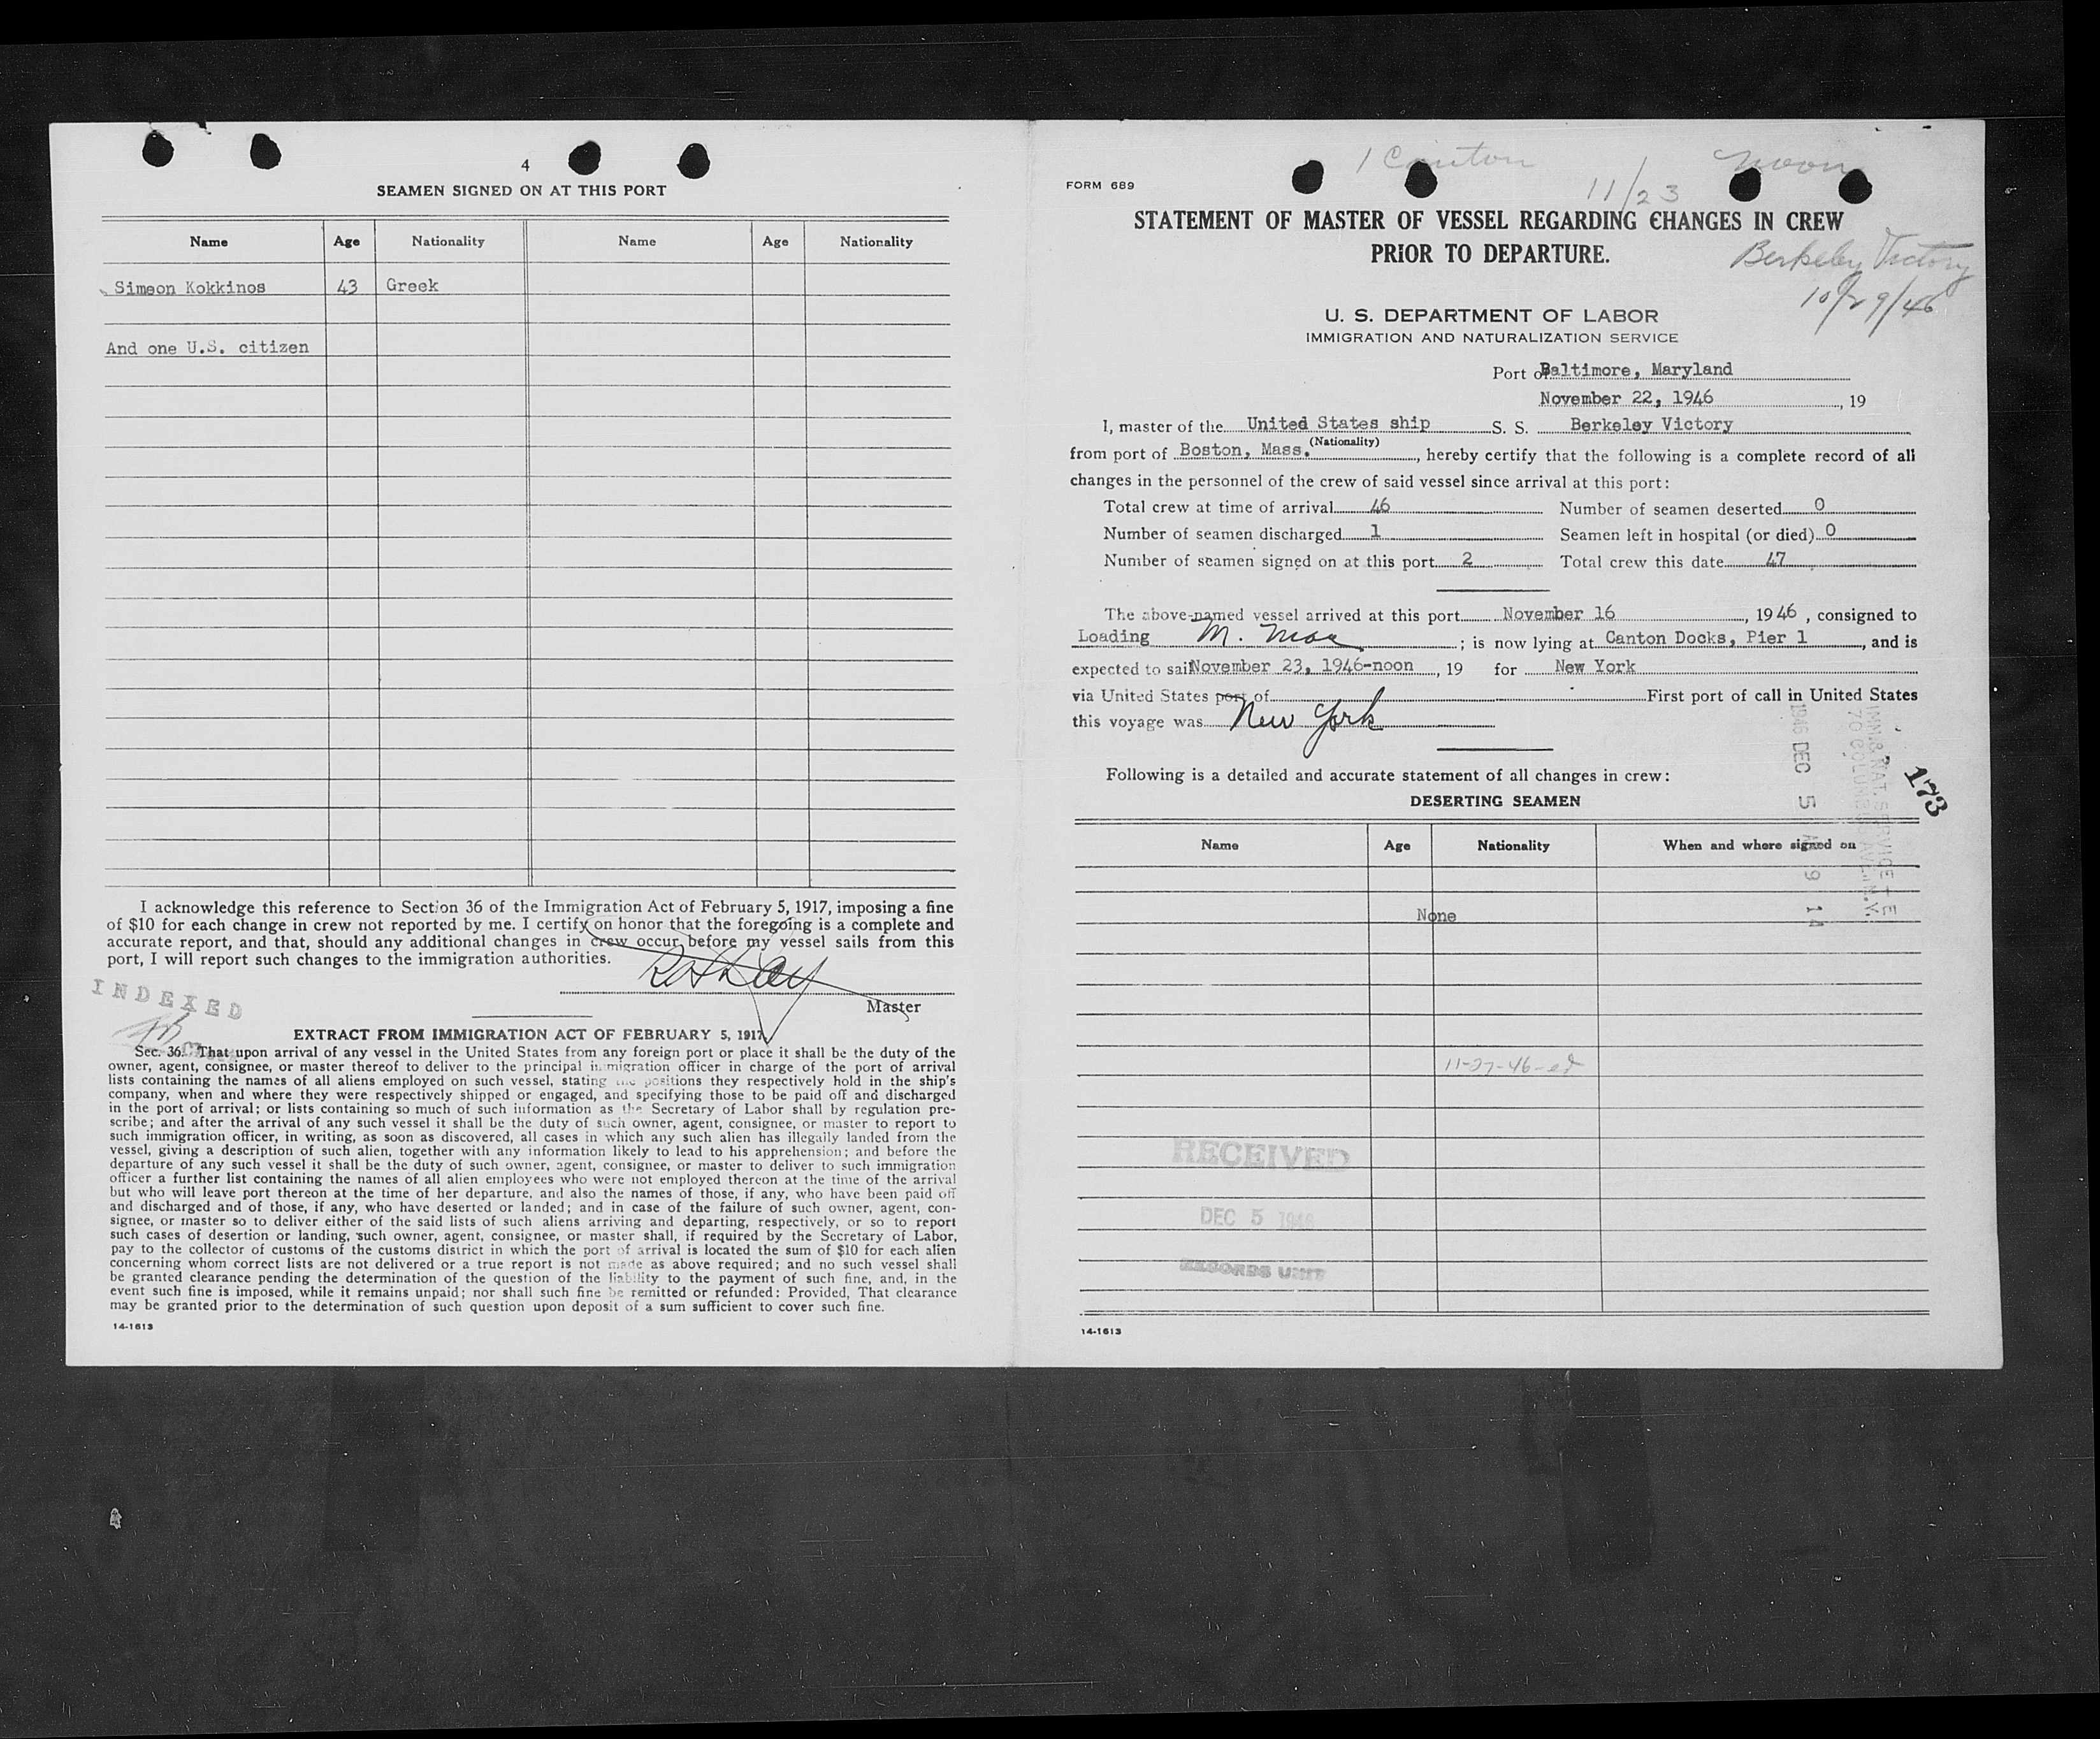 4
SEAMEN SIGNED ON AT THIS PORT
Name Age Nationality Name Age Nationality
Simeon Kokkinos 43 Greek
And one U.S. citizen
I acknowledge this reference to Section 36 of the Immigration Act of February 5, 1917, imposing a fine
of $10 for each change in crew not reported by me. I certify on honor that the foregoing is a complete and
accurate report, and that, should any additional changes in crew occur before my vessel sails from this
port, I will report such changes to the immigration authorities.
Master
INDEXED
EXTRACT FROM IMMIGRATION ACT OF FEBRUARY 5, 1917
Sec. 36. That upon arrival of any vessel in the United States from any foreign port or place it shall be the duty of the
owner, agent, consignee, or master thereof to deliver to the principal immigration officer in charge of the port of arrival
lists containing the names of all aliens employed on such vessel, stating the positions they respectively hold in the ship's
company, when and where they were respectively shipped or engaged, and specifying those to be paid off and discharged
in the port of arrival; or lists containing so much of such information as the Secretary of Labor shall by regulation pre-
scribe; and after the arrival of any such vessel it shall be the duty of such owner, agent, consignee, or master to report to
such immigration officer, in writing, as soon as discovered, all cases in which any such alien has illegally landed from the
vessel, giving a description of such alien, together with any information likely to lead to his apprehension; and before the
departure of any such vessel it shall be the duty of such owner, agent, consignee, or master to deliver to such immigration
officer a further list containing the names of all alien employees who were not employed thereon at the time of the arrival
but who will leave port thereon at the time of her departure, and also the names of those, if any, who have been paid off
and discharged and of those, if any, who have deserted or landed; and in case of the failure of such owner, agent, con-
signee, or master so to deliver either of the said lists of such aliens arriving and departing, respectively, or so to report
such cases of desertion or landing, such owner, agent, consignee, or master shall, if required by the Secretary of Labor,
pay to the collector of customs of the customs district in which the port of arrival is located the sum of $10 for each alien
concerning whom correct lists are not delivered or a true report is not made as above required; and no such vessel shall
be granted clearance pending the determination of the question of the liability to the payment of such fine, and, in the
event such fine is imposed, while it remains unpaid; nor shall such fine be remitted or refunded: Provided, That clearance
may be granted prior to the determination of such question upon deposit of a sum sufficient to cover such fine.
14-1613
1 Canton
11/23
Noon
FORM 689
STATEMENT OF MASTER OF VESSEL REGARDING CHANGES IN CREW
PRIOR TO DEPARTURE.
Berkeley Victory
10/29/46
U. S. DEPARTMENT OF LABOR
IMMIGRATION AND NATURALIZATION SERVICE
Port of Baltimore, Maryland
November 22, 1946, 19
I, master of the United States ship S. S. Berkeley Victory
(Nationality)
from port of Boston, Mass., hereby certify that the following is a complete record of all
changes in the personnel of the crew of said vessel since arrival at this port:
Total crew at time of arrival 46 Number of seamen deserted 0
Number of seamen discharged 1 Seamen left in hospital (or died) 0
Number of seamen signed on at this port 2 Total crew this date 47
The above-named vessel arrived at this port November 16, 1946, consigned to
Loading ; is now lying at Canton Docks, Pier 1, and is
expected to sail November 23, 1946-noon, 19 for New York
via United States port of First port of call in United States
this voyage was New York
Following is a detailed and accurate statement of all changes in crew:
173
1946 DEC 5 9 14
DESERTING SEAMEN
Name Age Nationality When and where signed on
None
11-27-46-ed
RECEIVED
DEC 5 1946
RECORDS UNIT
14-1613